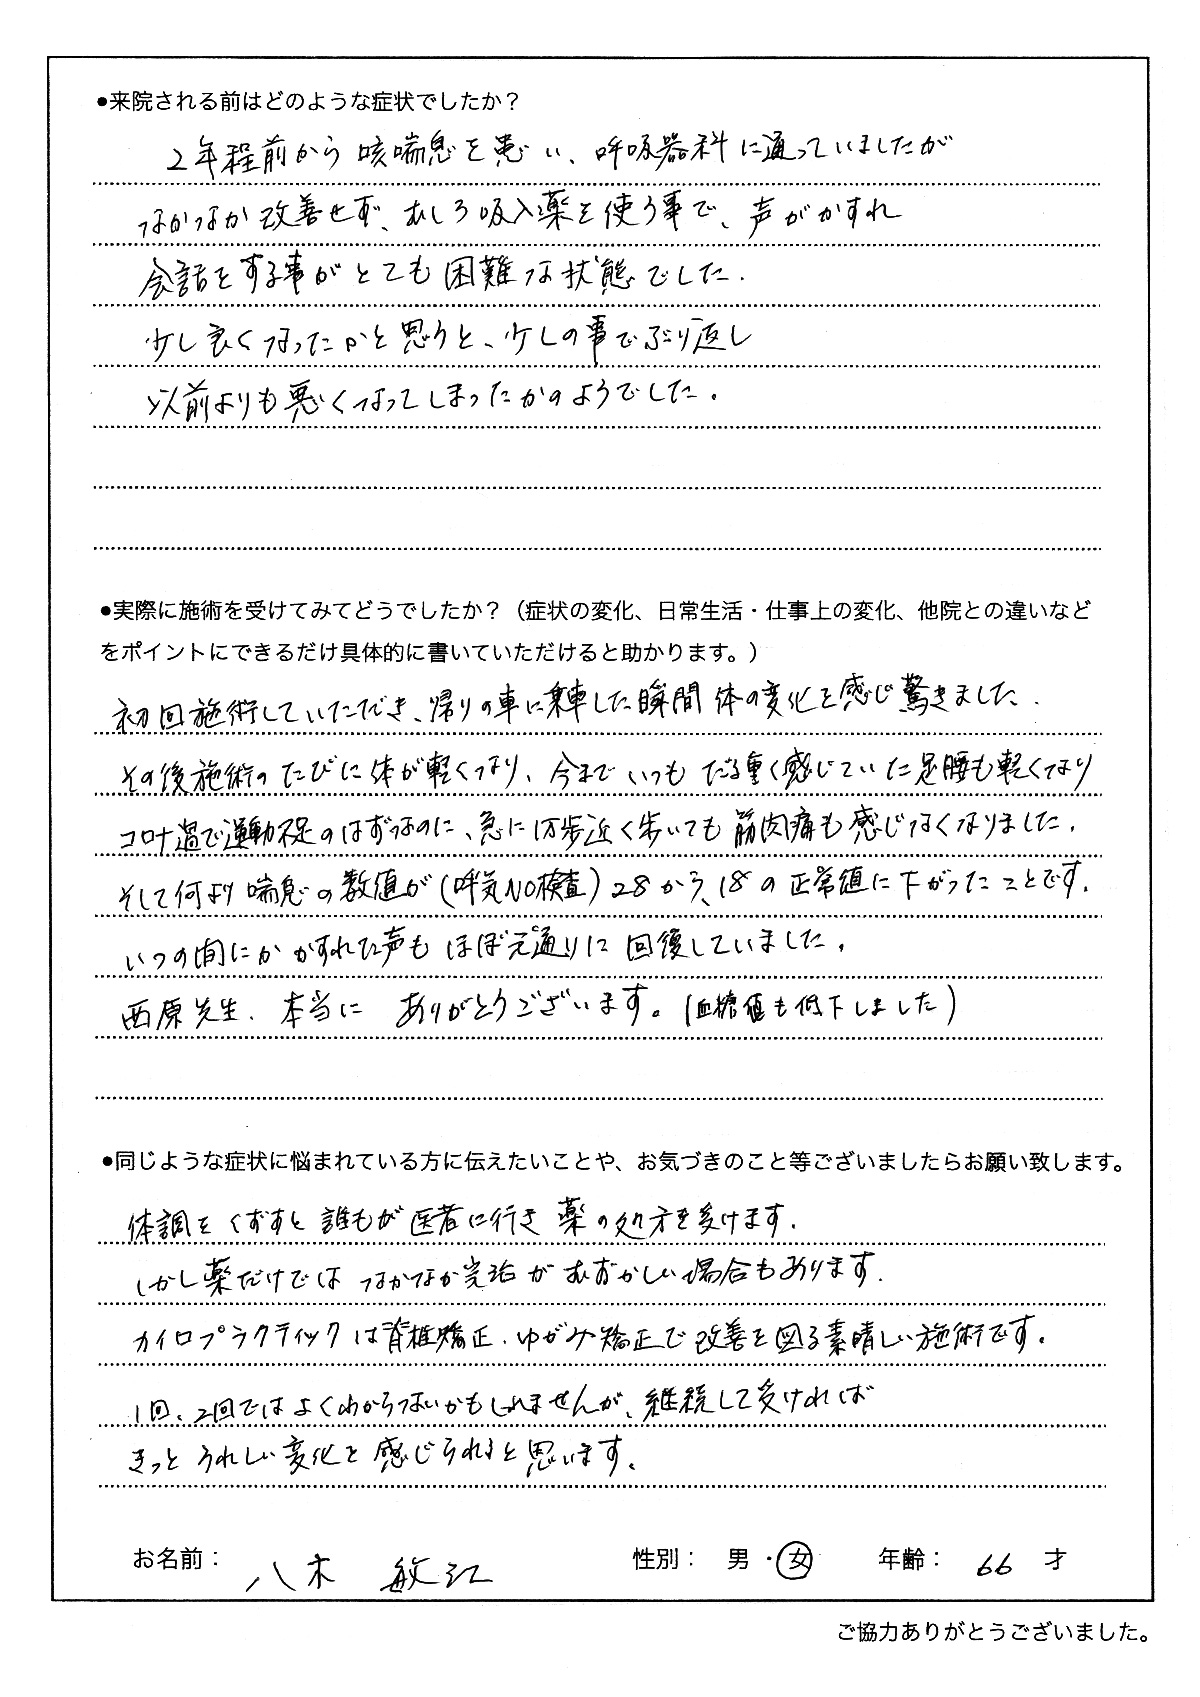 ●来院される前はどのような症状でしたか？
2年程前から咳喘息を患い、呼吸器科に通っていましたが
なかなか改善せず、むしろ吸入薬を使う事で、声がかすれ
会話をする事がとても困難な状態でした.
少し良くなったかと思うと、少しの事でぶり返し
以前よりも悪くなってしまったかのようでした.
●実際に施術を受けてみてどうでしたか？（症状の変化、日常生活・仕事上の変化、他院との違いなど
をポイントにできるだけ具体的に書いていただけると助かります。）
初回施術していただき、帰りの車に乗車した瞬間 体の変化を感じ驚きました.
その後施術のたびに体が軽くなり、今までいつもだる重く感じていた足腰も軽くなり
コロナ過で運動不足のはずなのに、急に1万歩近く歩いても筋肉痛も感じなくなりました.
そして何より喘息の数値が(呼気NO検査)28から、18の正常値に下がったことです.
いつの間にかかすれた声もほぼ元通りに回復していました.
西原先生、本当に ありがとうございます。(血糖値も低下しました)
●同じような症状に悩まれている方に伝えたいことや、お気づきのこと等ございましたらお願い致します。
体調をくずすと誰もが医者に行き薬の処方を受けます.
しかし薬だけではなかなか完治がむずかしい場合もあります.
カイロプラクティックは脊椎矯正、ゆがみ矯正で改善を図る素晴しい施術です.
1回、2回ではよくわからないかもしれませんが、継続して受ければ
きっとうれしい変化を感じられると思います.
お名前： 八木 敏江 性別： 男・女 年齢： 66 才
ご協力ありがとうございました。